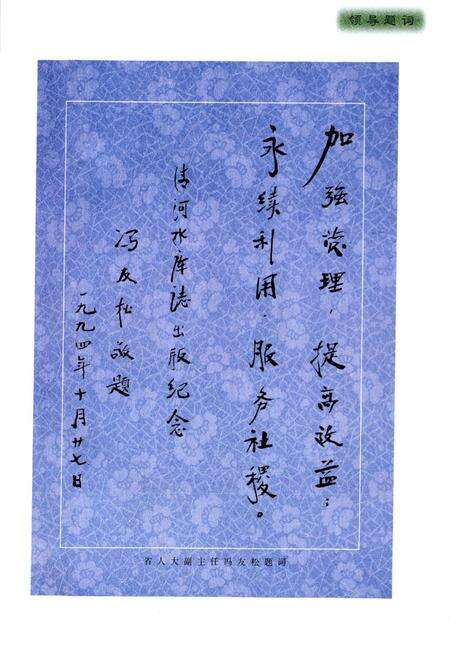 领导题词
加强管理，提高效益；
永续利用，服务社稷。
清河水库誌出版纪念
冯友松敬题
一九九四年十月廿七日
省人大副主任冯友松题词